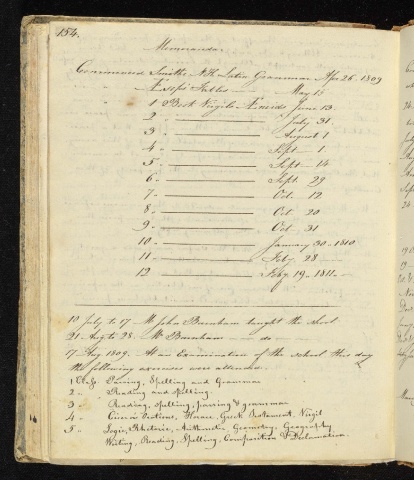 154.
Memoranda.
Commenced Smiths N.H. Latin Grammar Apr 26. 1809
" Æsops Fables May 15
" 1 Book Virgils Æneids June 13.
2 " July 31.
3 " August 1
4 " Sept 1
5 " Sept 14
6 " Sept. 29
7 " Oct. 12
8 " Oct. 20
9 " Oct. 31
10 " January 30 - 1810
11 " Feby 28
12 " Feby 19 - 1811.
10 July to 17 - Mr John Burnham taught the school
21 Aug to 28 - Mr Burnham do
17 Aug 1809. At an Examination of the school this day
the following exercises were attended.
1 Class. Parsing, Spelling and Grammar
2 " Reading and spelling.
3 " Reading, spelling, parsing & grammar
4 " Cicero's Orations, Horace, Greek Testament, Virgil
5 " Logic, Rhetoric, Arithmetic, Geometry, Geography,
Writing, Reading, Spelling, Composition & Declamation.